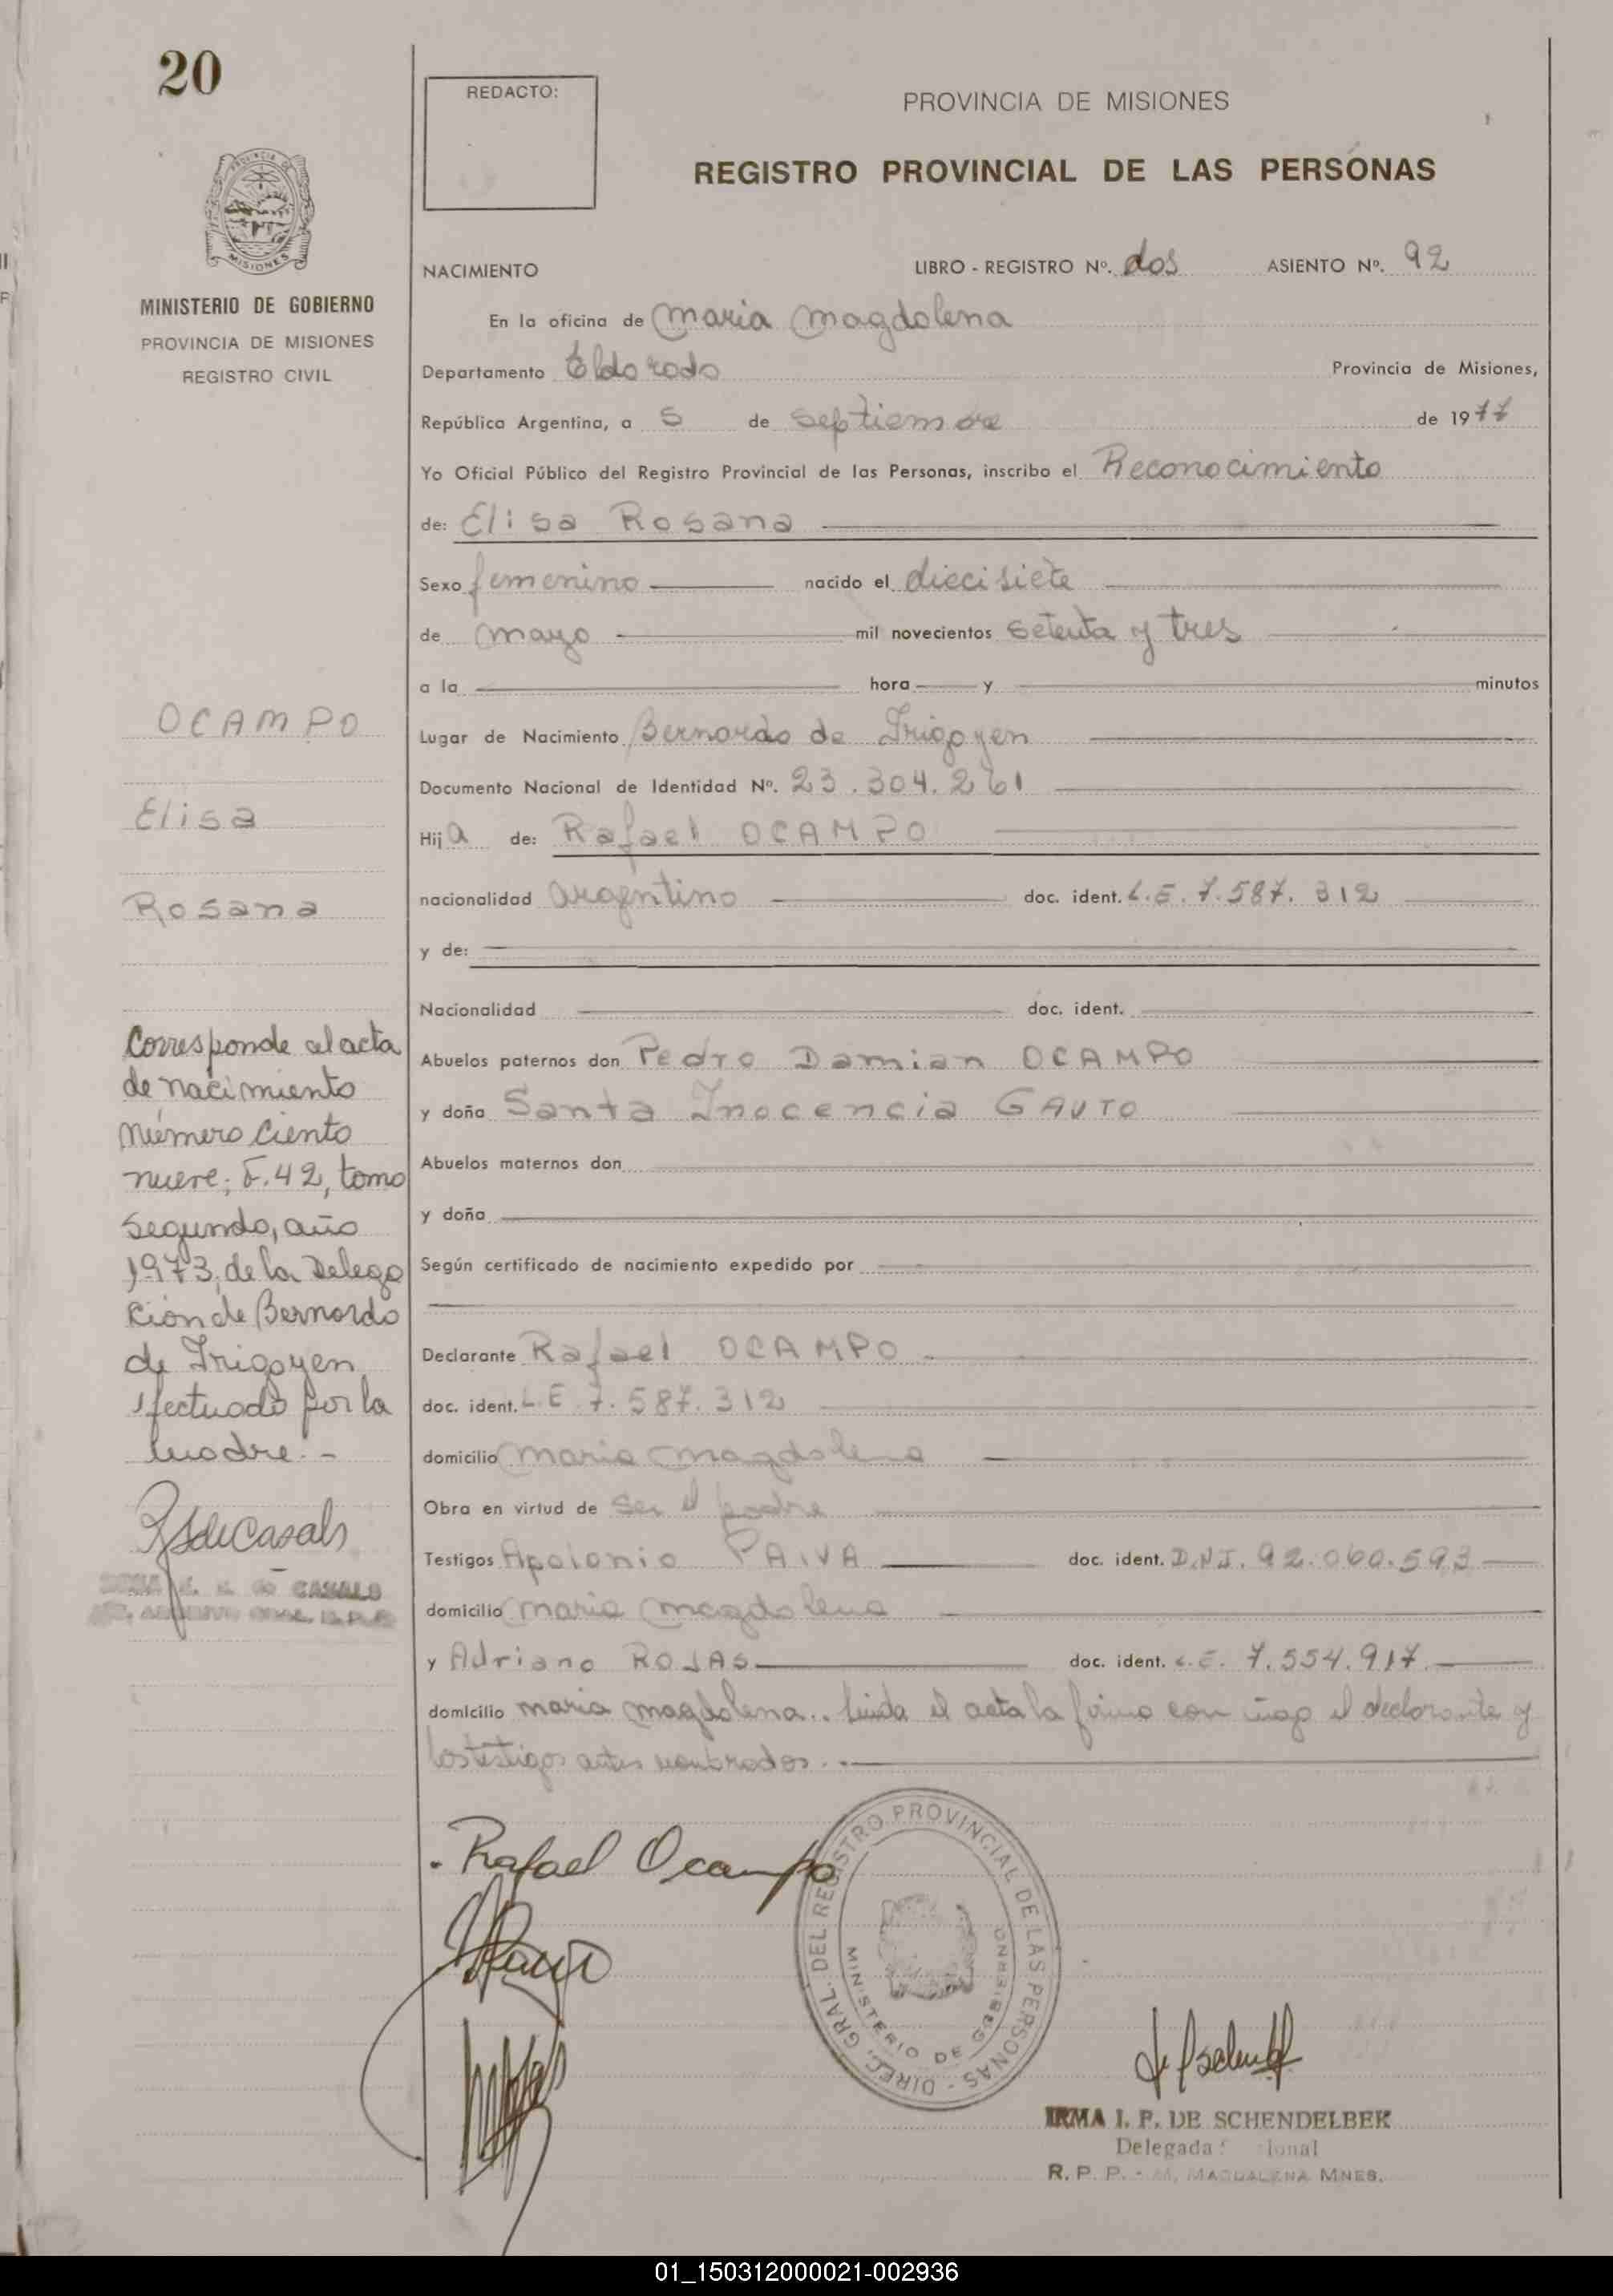 20
REDACTO:
PROVINCIA DE MISIONES
REGISTRO PROVINCIAL DE LAS PERSONAS
MISIONES
MINISTERIO DE GOBIERNO
PROVINCIA DE MISIONES
REGISTRO CIVIL
NACIMIENTO LIBRO - REGISTRO Nº. dos ASIENTO Nº. 92
En la oficina de Maria Magdalena
Departamento Eldorado Provincia de Misiones,
República Argentina, a 5 de Septiembre de 1977
Yo Oficial Público del Registro Provincial de las Personas, inscribo el Reconocimiento
de: Elisa Rosana
Sexo femenino nacido el diecisiete
de mayo mil novecientos setenta y tres
a la hora y minutos
Lugar de Nacimiento Bernardo de Irigoyen
Documento Nacional de Identidad Nº. 23.304.261
Hija de: Rafael OCAMPO
nacionalidad argentino doc. ident. L.E. 7.587.312
y de:
Nacionalidad doc. ident.
Abuelos paternos don Pedro Damian OCAMPO
y doña Santa Inocencia GAUTO
Abuelos maternos don
y doña
Según certificado de nacimiento expedido por
Declarante Rafael OCAMPO
doc. ident. L.E 7.587.312
domicilio Maria Magdalena
Obra en virtud de Ser el padre
Testigos Apolonio PAIVA doc. ident. D.N.I. 92.060.593
domicilio Maria Magdalena
y Adriano ROJAS doc. ident. L.E. 7.554.917
domicilio Maria Magdalena.. Leida el acta la firma con migo el declarante y
los testigos antes nombrados.
OCAMPO
Elisa
Rosana
Corresponde al acta
de nacimiento
número ciento
nueve; F.42, tomo
segundo, año
1973, de la Delega
ción de Bernardo
de Irigoyen
efectuado por la
madre.-
CASALS
Rafael Ocampo
DIREC. GRAL. DEL REGISTRO PROVINCIAL DE LAS PERSONAS -
MINISTERIO DE GOBIERNO
IRMA I. P. DE SCHENDELBEK
Delegada
R. P. P. - M. MAGDALENA MNES.
01_150312000021-002936